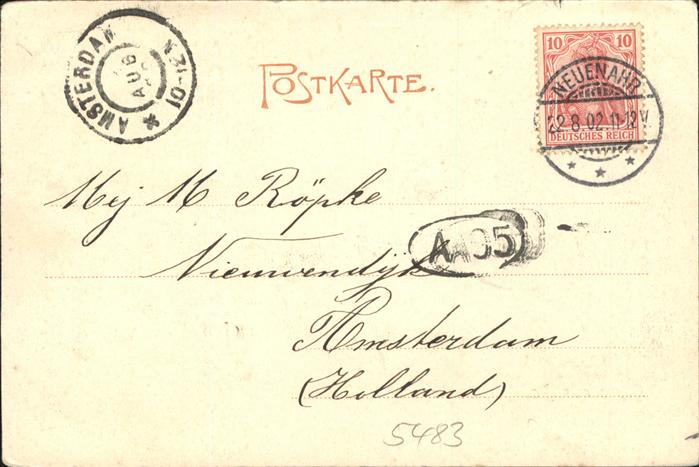 AMSTERDAM
AUG
10-12N
POSTKARTE.
10 10
NEUENAHR
22.8.02.11-12V
DEUTSCHES REICH
Mej M Röpke
Nieuwendijk
Amsterdam
(Holland)
5483